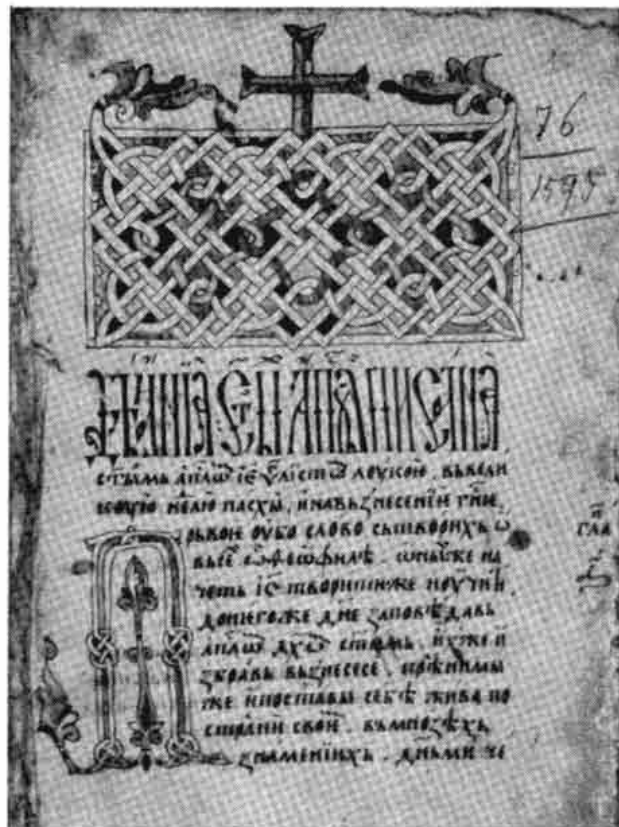 76
1595
Дѣанїа ст҃ы ап҃лъ писанна
ст҃ымь ап҃лѡ і еѵ҃лістѡ лоукою, въвели
коую не҃лю пасхы, и навъзнесенїи гн҃и,
Прьвои оубо слово сътворихъ ѡ
вьсе ѡ ѳеѡфиле. ѡныже на
четь і҃с творитиже иоучити
донегоже дн҃е заповѣдавь
ап҃лѡ дх҃ѡ ст҃ымь, ихже и
збравь възнесесе. прѣнимы
же ипоставы себѣ жива по
страдни свои. вьмнозѣхъ
знаменїихъ. дньми че
гла